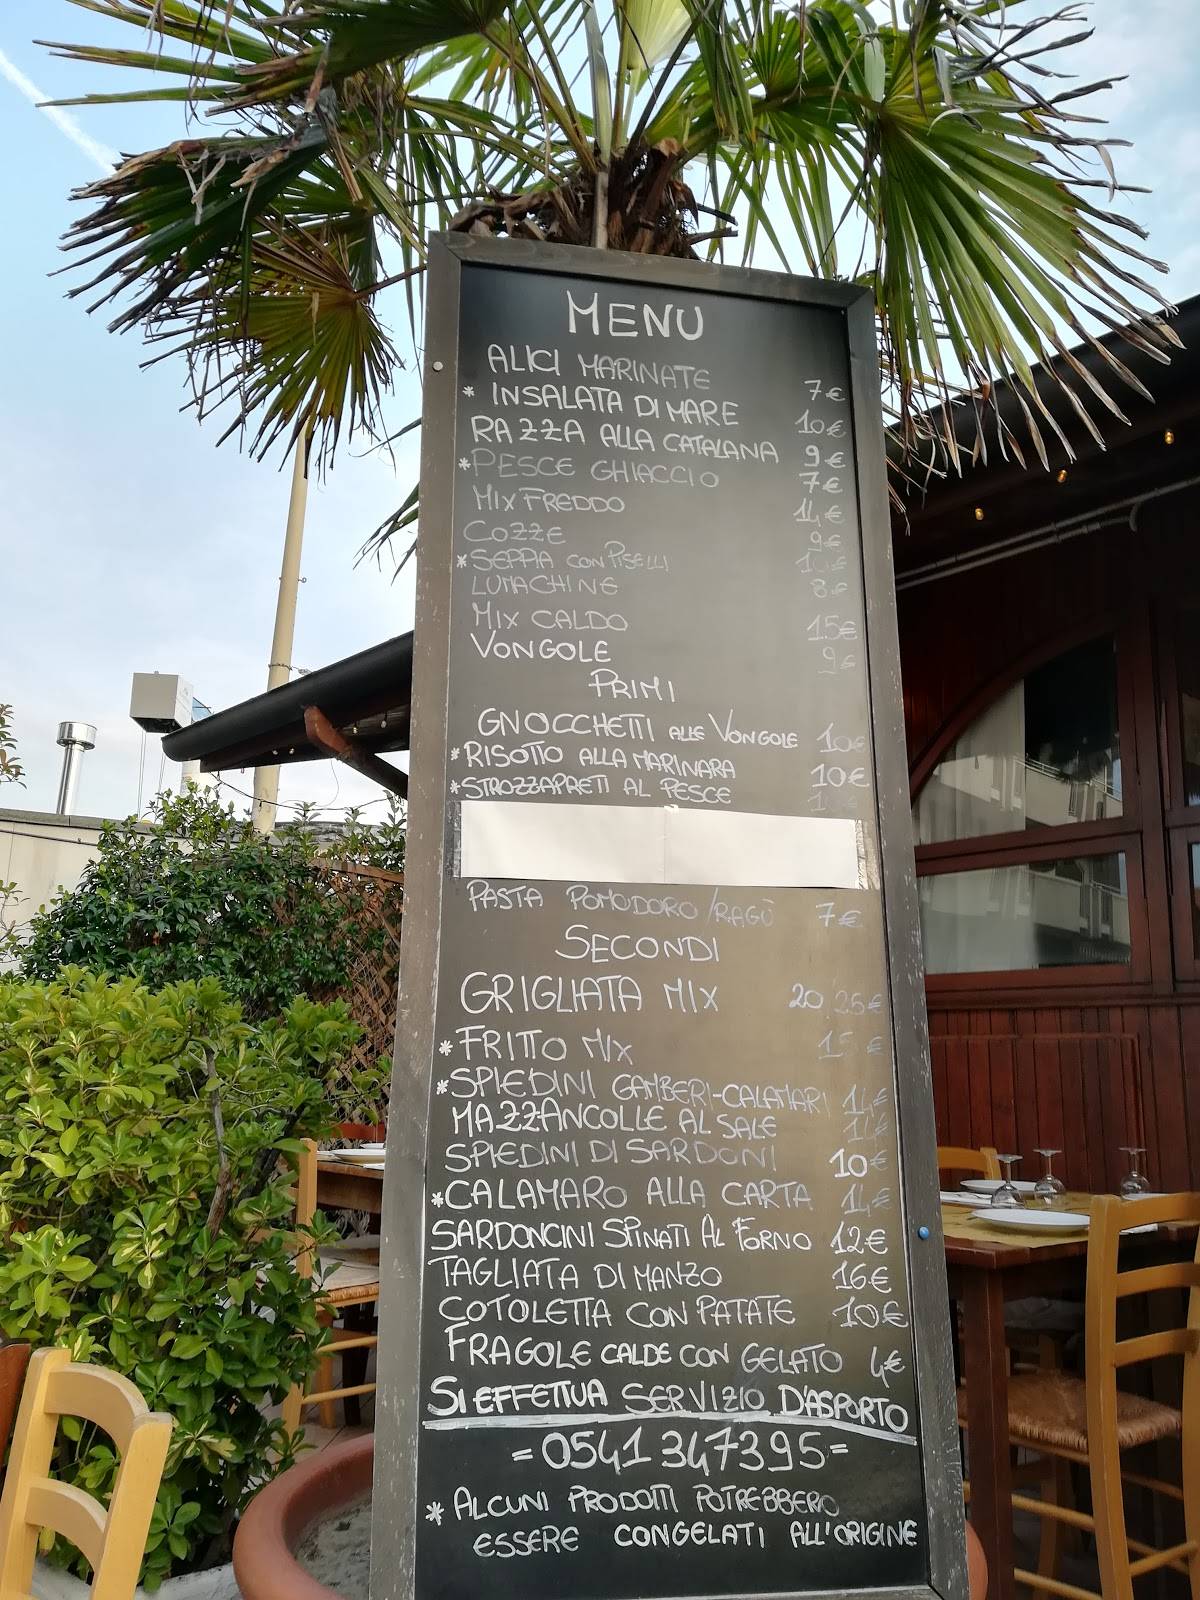 MENU
ALICI MARINATE 7€
* INSALATA DI MARE 10€
RAZZA ALLA CATALANA 9€
*PESCE GHIACCIO 7€
MIX FREDDO 14€
COZZE 9€
*SEPPIA CON PISELLI 10€
LUMACHINE 8€
MIX CALDO 15€
VONGOLE 9€
PRIMI
GNOCCHETTI ALLE VONGOLE 10€
*RISOTTO ALLA MARINARA 10€
*STROZZAPRETI AL PESCE
PASTA POMODORO/RAGÙ 7€
SECONDI
GRIGLIATA MIX 20/25€
*FRITTO MIX 15€
*SPIEDINI GAMBERI-CALAMARI 14€
MAZZANCOLLE AL SALE 14€
SPIEDINI DI SARDONI 10€
*CALAMARO ALLA CARTA 14€
SARDONCINI SPINATI AL FORNO 12€
TAGLIATA DI MANZO 16€
COTOLETTA CON PATATE 10€
FRAGOLE CALDE CON GELATO 4€
SI EFFETTUA SERVIZIO D'ASPORTO
=0541 347395=
* ALCUNI PRODOTTI POTREBBERO
ESSERE CONGELATI ALL'ORIGINE